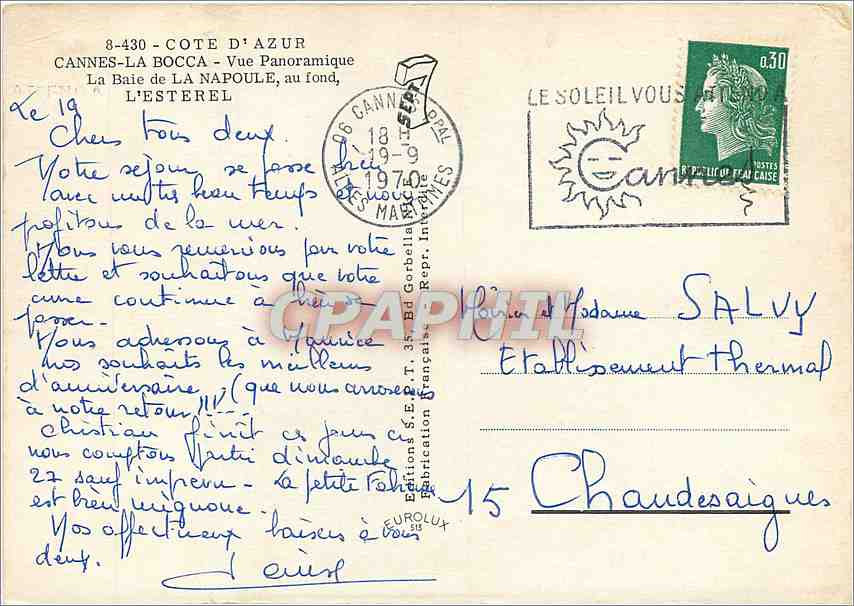 8-430 - COTE D'AZUR
CANNES-LA BOCCA - Vue Panoramique
La Baie de LA NAPOULE, au fond,
L'ESTEREL
Le 19
Chers tous deux.
Notre sejour se passe bien
avec un très beau temps et nous
profitons de la mer.
Nous vous remercions pour votre
lettre et souhaitons que votre
cure continue à bien se
passer.
Nous adressons à Maurice
nos souhaits les meilleurs
d'anniversaire (que nous arroserons
à notre retour !!! ---
Christian finit ces jours ci
nous comptons partir dimanche
27 sauf imprévu - La petite
est bien mignonne.
Nos affectueux baisers à vous
deux.
SEPT
06 CANNES PPAL
18 H
19-9
1970
ALPES MARITIMES
LE SOLEIL VOUS ATTEND A
Cannes
0,30
POSTES
REPUBLIQUE FRANCAISE
Editions S.E.P.T. 35, Bd Gorbella NICE
Fabrication Française - Repr. Interdite
EUROLUX
513
CPAPHIL
Monsieur et Madame SALVY
Etablissement thermal
15 Chaudesaigues